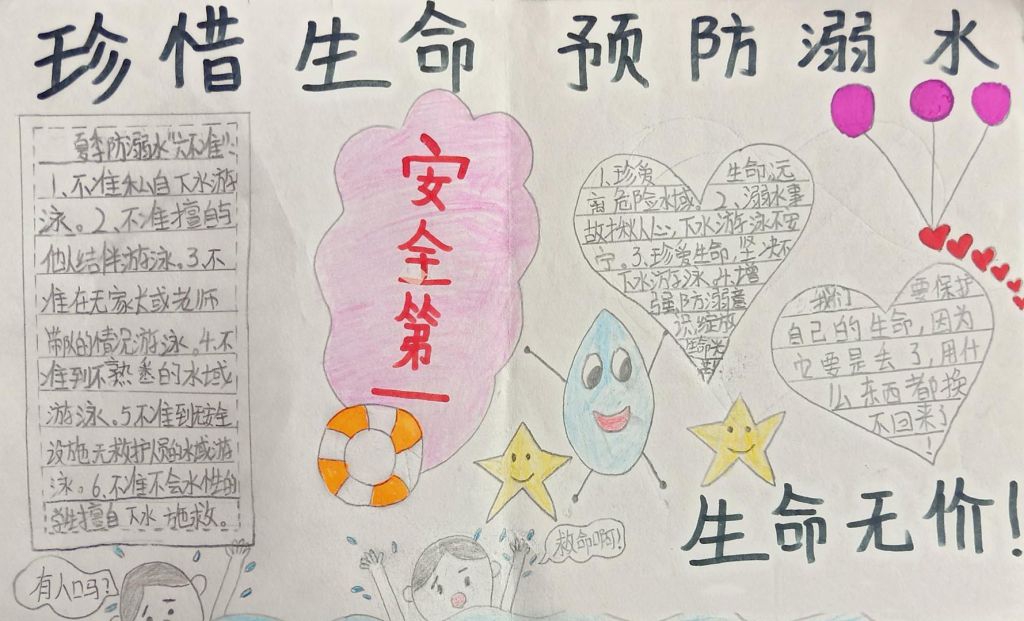 珍惜生命 预防溺水
夏季防溺水"六不准":
1、不准私自下水游
泳。2、不准擅自与
他人结伴游泳。3、不
准在无家长或老师
带队的情况游泳。4、不
准到不熟悉的水域
游泳、5、不准到无安全
设施无救护人员的水域游
泳。6、不准不会水性的
学生擅自下水施救。
安全第一
1、珍爱生命,远
离危险水域、2、溺水事
故揪人心,下水游泳不安
宁。3、珍爱生命,坚决不
下水游泳、4、增
强防溺意
识,绽放
生命光
我们要保护
自己的生命,因为
它要是丢了,用什
么东西都换
不回来了
!
生命无价!
有人吗?
救命啊!